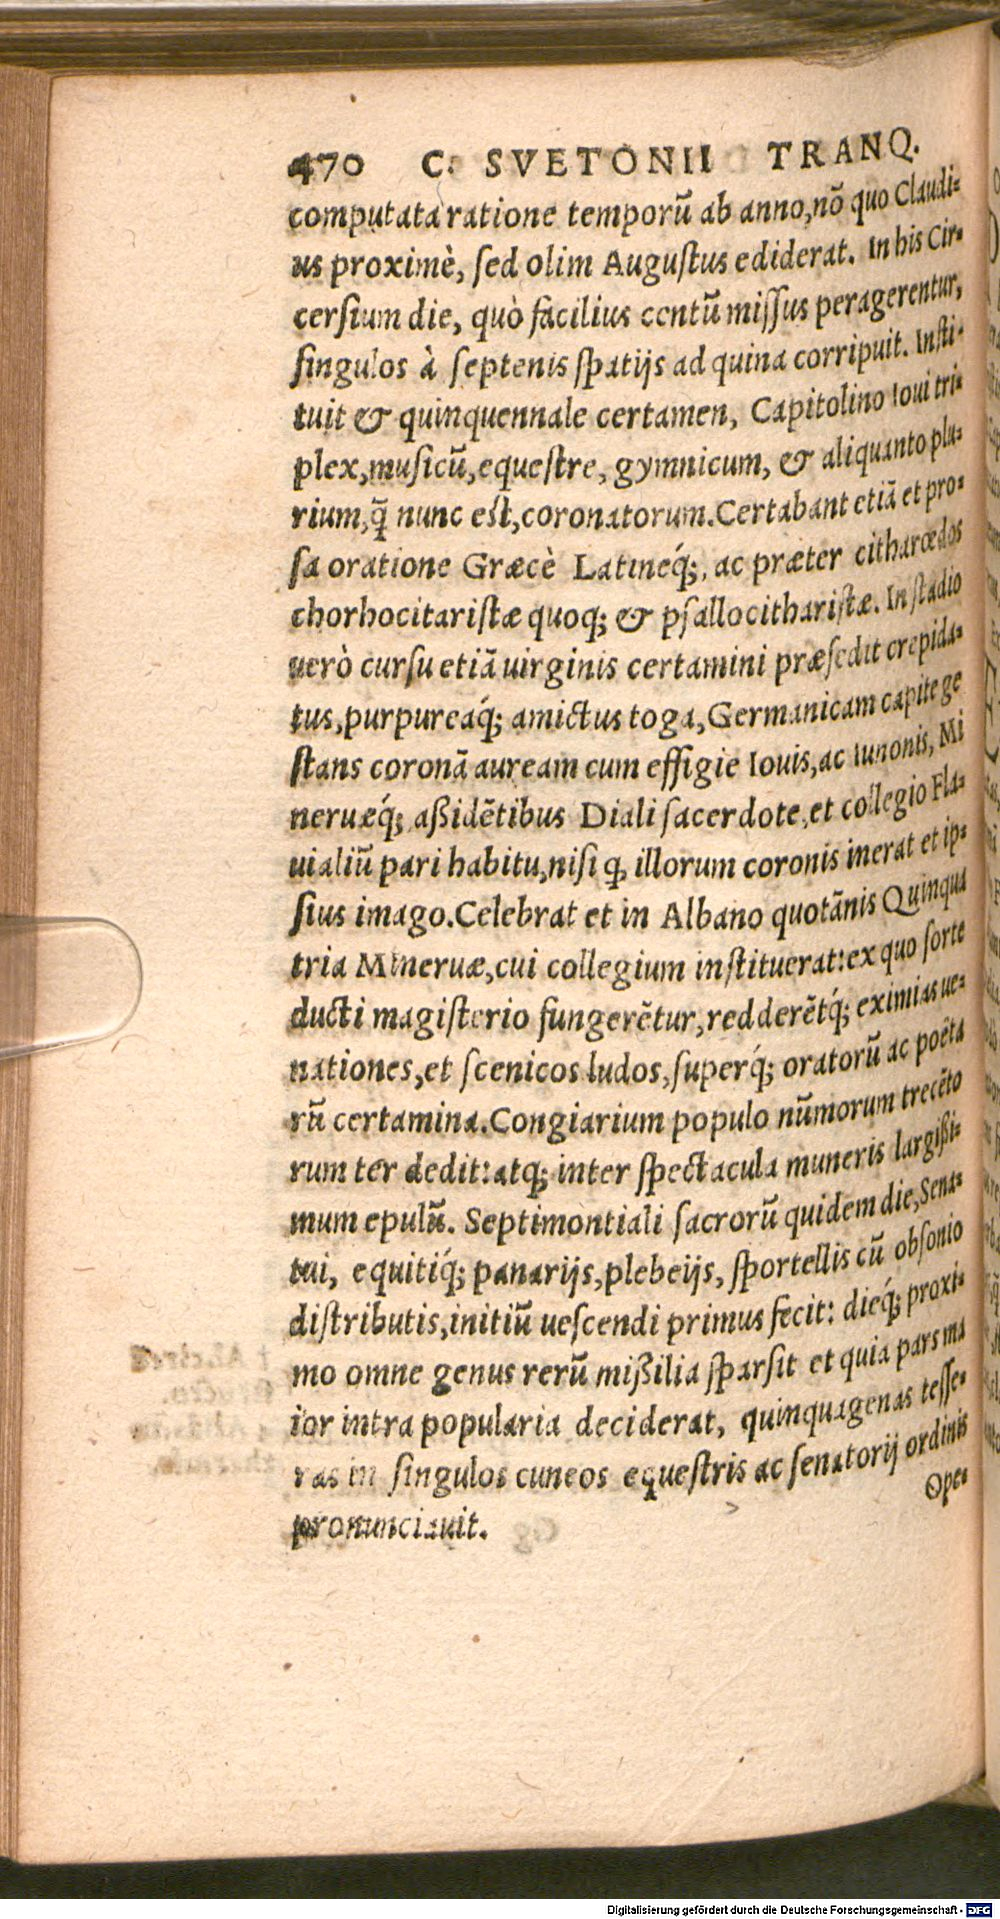 470 C. SVETONII TRANQ.
computata ratione temporū ab anno, nō quo Claudi-
us proximè, ſed olim Auguſtus ediderat. In his Cir-
cerſium die, quò facilius centū miſſus peragerentur,
ſingulos à ſeptenis ſpatijs ad quina corripuit. Inſti-
tuit & quinquennale certamen, Capitolino Ioui tri-
plex, muſicū, equeſtre, gymnicum, & aliquanto plu-
rium, q̃ nunc eſt, coronatorum. Certabant etiā et pro-
ſa oratione Græcè Latineq́;, ac præter citharœdos
chorhocitariſtæ quoq; & pſallocithariſtæ. In ſtadio
uerò curſu etiā uirginis certamini præſedit crepida-
tus, purpureaq́; amictus toga, Germanicam capite ge
ſtans coronā auream cum effigie Iouis, ac Iunonis, Mi
neruæq́; aßidētibus Diali ſacerdote, et collegio Fla-
uialiū pari habitu, niſi q, illorum coronis inerat et ip-
ſius imago. Celebrat et in Albano quotānis Quinqua
tria Mineruæ, cui collegium inſtituerat: ex quo ſorte
ducti magiſterio fungerētur, redderētq́; eximias ue-
nationes, et ſcenicos ludos, ſuperq́; oratorū ac poëta
rū certamina. Congiarium populo nūmorum trecēto
rum ter dedit: atq; inter ſpectacula muneris largißi-
mum epulū. Septimontiali ſacrorū quidem die, Sena-
tui, equitiq́; panarijs, plebeijs, ſportellis cū obſonio
diſtributis, initiū ueſcendi primus fecit: dieq́; proxi-
mo omne genus rerū mißilia ſparſit et quia pars ma
ior intra popularia deciderat, quinquagenas teſſe-
ras in ſingulos cuneos equeſtris ac ſenatorij ordinis
pronunciauit.
Ope-
Digitalisierung gefördert durch die Deutsche Forschungsgemeinschaft - DFG